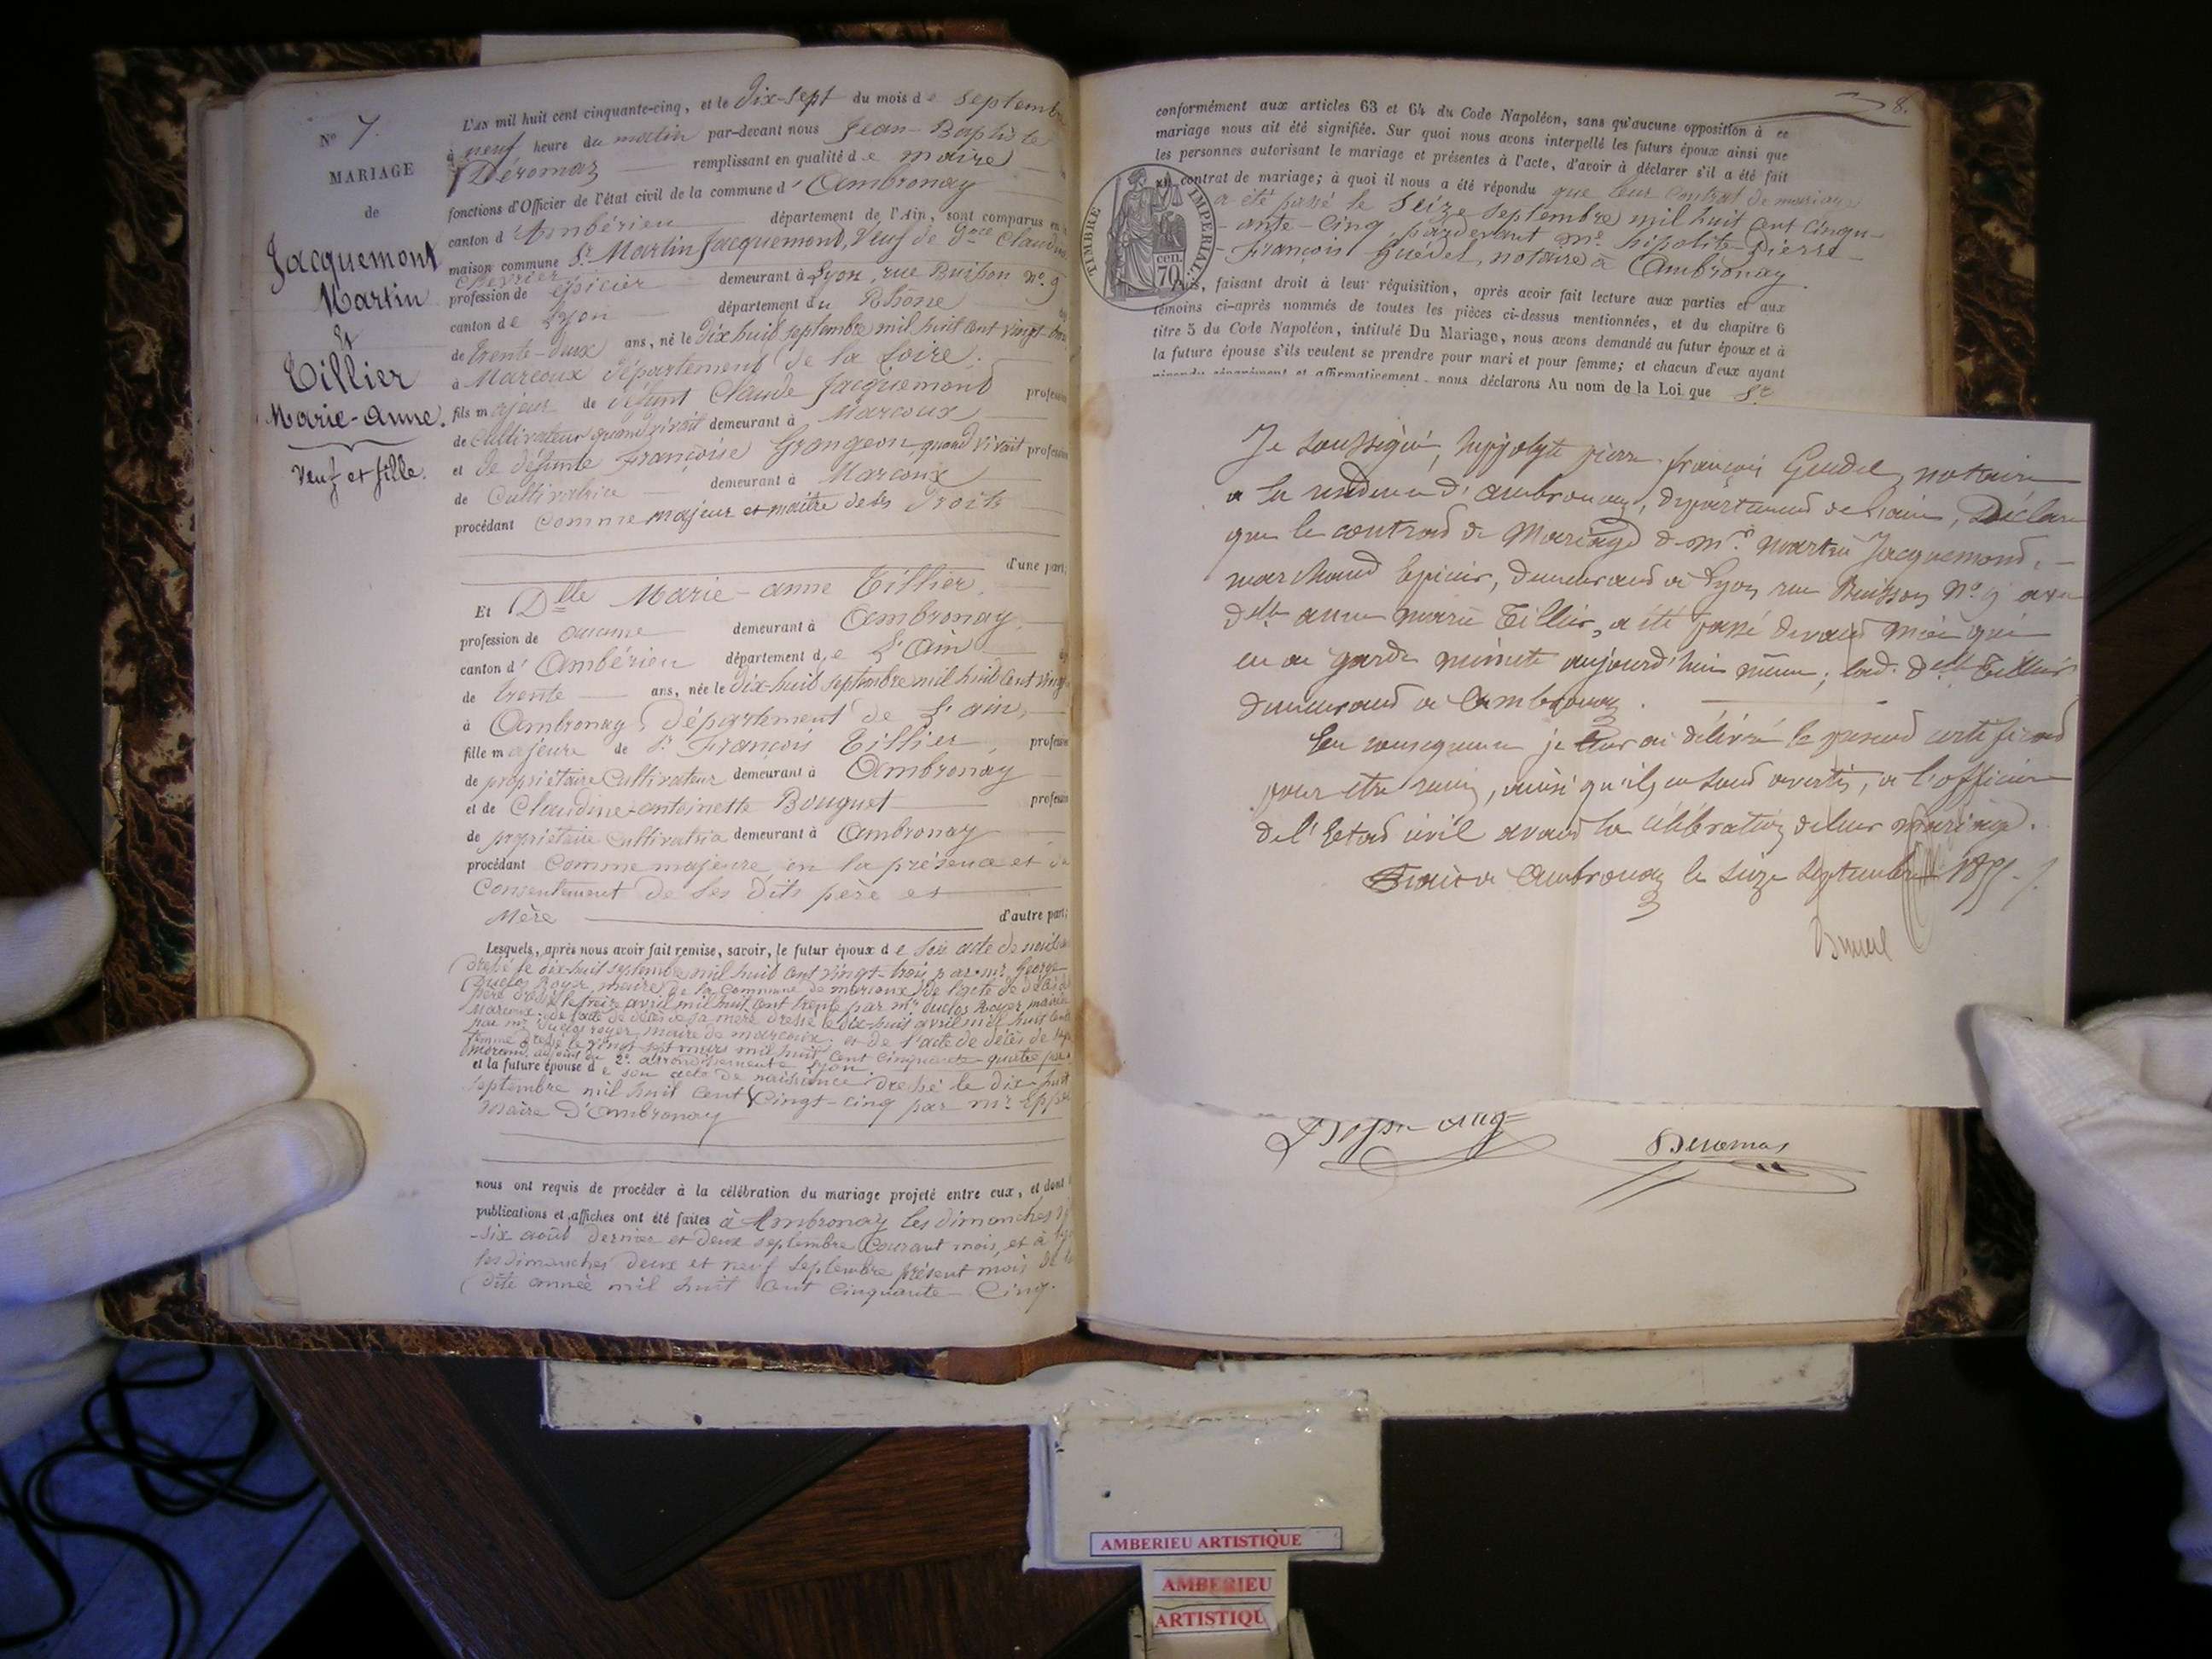 No 7.
MARIAGE
de
Jacquemont
Martin
&
Tillier
Marie-Anne.
Veuf et fille.
L'AN mil huit cent cinquante-cinq, et le Dix-sept du mois de septembre
à neuf heure du matin par-devant nous Jean-Baptiste
Déromas remplissant en qualité de maire
fonctions d'Officier de l'état civil de la commune d'Ambronay
canton d'Ambérieu département de l'Ain, sont comparus en
maison commune Sr Martin Jacquemont, Veuf de Claudine
Chevrier
profession de épicier demeurant à Lyon, rue Buisson no. 9
canton de Lyon département du Rhône
de trente-deux ans, né le dix huit septembre mil huit cent vingt-trois
à Marcoux département de la Loire.
fils majeur de défunt Claude Jacquemont profession
de Cultivateur quand vivait demeurant à Marcoux
et de défunte Françoise Grangeon, quand vivait profession
de Cultivatrice demeurant à Marcoux
procédant Comme majeur et maître de ses Droits
d'une part;
Et Dlle Marie-anne Tillier,
profession de aucune demeurant à Ambronay
canton d'Ambérieu département de L'Ain
de trente ans, née le Dix-huit septembre mil huit cent vingt
à Ambronay, département de L'ain,
fille majeure de Sr François Tillier, profession
de propriétaire Cultivateur demeurant à Ambronay
et de Claudine-antoinette Bouguet profession
de propriétaire Cultivatrice demeurant à Ambronay
procédant Comme majeure en la présence et du
Consentement de ses dits père et
Mère d'autre part;
Lesquels, après nous avoir fait remise, savoir, le futur époux de son acte de naissance
dressé le dix-huit septembre mil huit cent vingt-trois par mr. George
Duclos Royer, maire de la Commune de marcoux, de l'acte de décès de
père dressé le treize avril mil huit cent trente par mr. duclos Royer maire de
Marcoux; de l'acte de décès de sa mère dressé le dix-huit avril mil huit cent
par mr. duclos royer, maire de marcoux; et de l'acte de décès de sa
femme dressé le vingt-sept mars mil huit cent cinquante-quatre par
adjoint du 2e arrondissement Lyon.
et la future épouse de son acte de naissance dressé le dix-huit
septembre mil huit cent vingt-cinq par mr.
Maire D'Ambronay
nous ont requis de procéder à la célébration du mariage projeté entre eux, et dont
publications et affiches ont été faites à Ambronay les dimanches vingt
-six août dernier et deux septembre Courant mois, et à Lyon
les dimanches deux et neuf septembre présent mois de la
dite année mil huit cent Cinquante-Cinq.
8.
conformément aux articles 63 et 64 du Code Napoléon, sans qu'aucune opposition à ce
mariage nous ait été signifiée. Sur quoi nous avons interpellé les futurs époux ainsi que
les personnes autorisant le mariage et présentes à l'acte, d'avoir à déclarer s'il a été fait
un contrat de mariage; à quoi il nous a été répondu que leur Contrat de mariage
a été passé le Seize septembre mil huit cent Cinqu-
-ante-Cinq, pardevant me. hipolite-Pierre-
-François Guédel, notaire à Ambronay.
TIMBRE IMPERIAL.
70 cen.
Nous, faisant droit à leur réquisition, après avoir fait lecture aux parties et aux
témoins ci-après nommés de toutes les pièces ci-dessus mentionnées, et du chapitre 6
titre 5 du Code Napoléon, intitulé Du Mariage, nous avons demandé au futur époux et à
la future épouse s'ils veulent se prendre pour mari et pour femme; et chacun d'eux ayant
répondu séparément et affirmativement, nous déclarons Au nom de la Loi que Sr
Je soussigné, hyppolyte pierre françois Guedel, notaire
a la residence d'ambronay, departement de l'ain, Déclare
que le contrat de Mariage de mr. martin Jacquemond,
marchand Epicier, demeurant a Lyon rue Buisson No 9 avec
dlle anne marie Tillier, a été passé devant moi qui
en ai gardé minute aujourd'hui même; lad. dlle Tillier
demeurant a Ambronay.
En consequence je leur ai délivré le present certificat
pour etre remis, ainsi qu'ils en sont avertis, a l'officier
de l'Etat civil avant la célébration de leur mariage.
Fait a Ambronay le seize septembre 1855.
Deromas
AMBERIEU ARTISTIQUE
AMBERIEU
ARTISTIQU